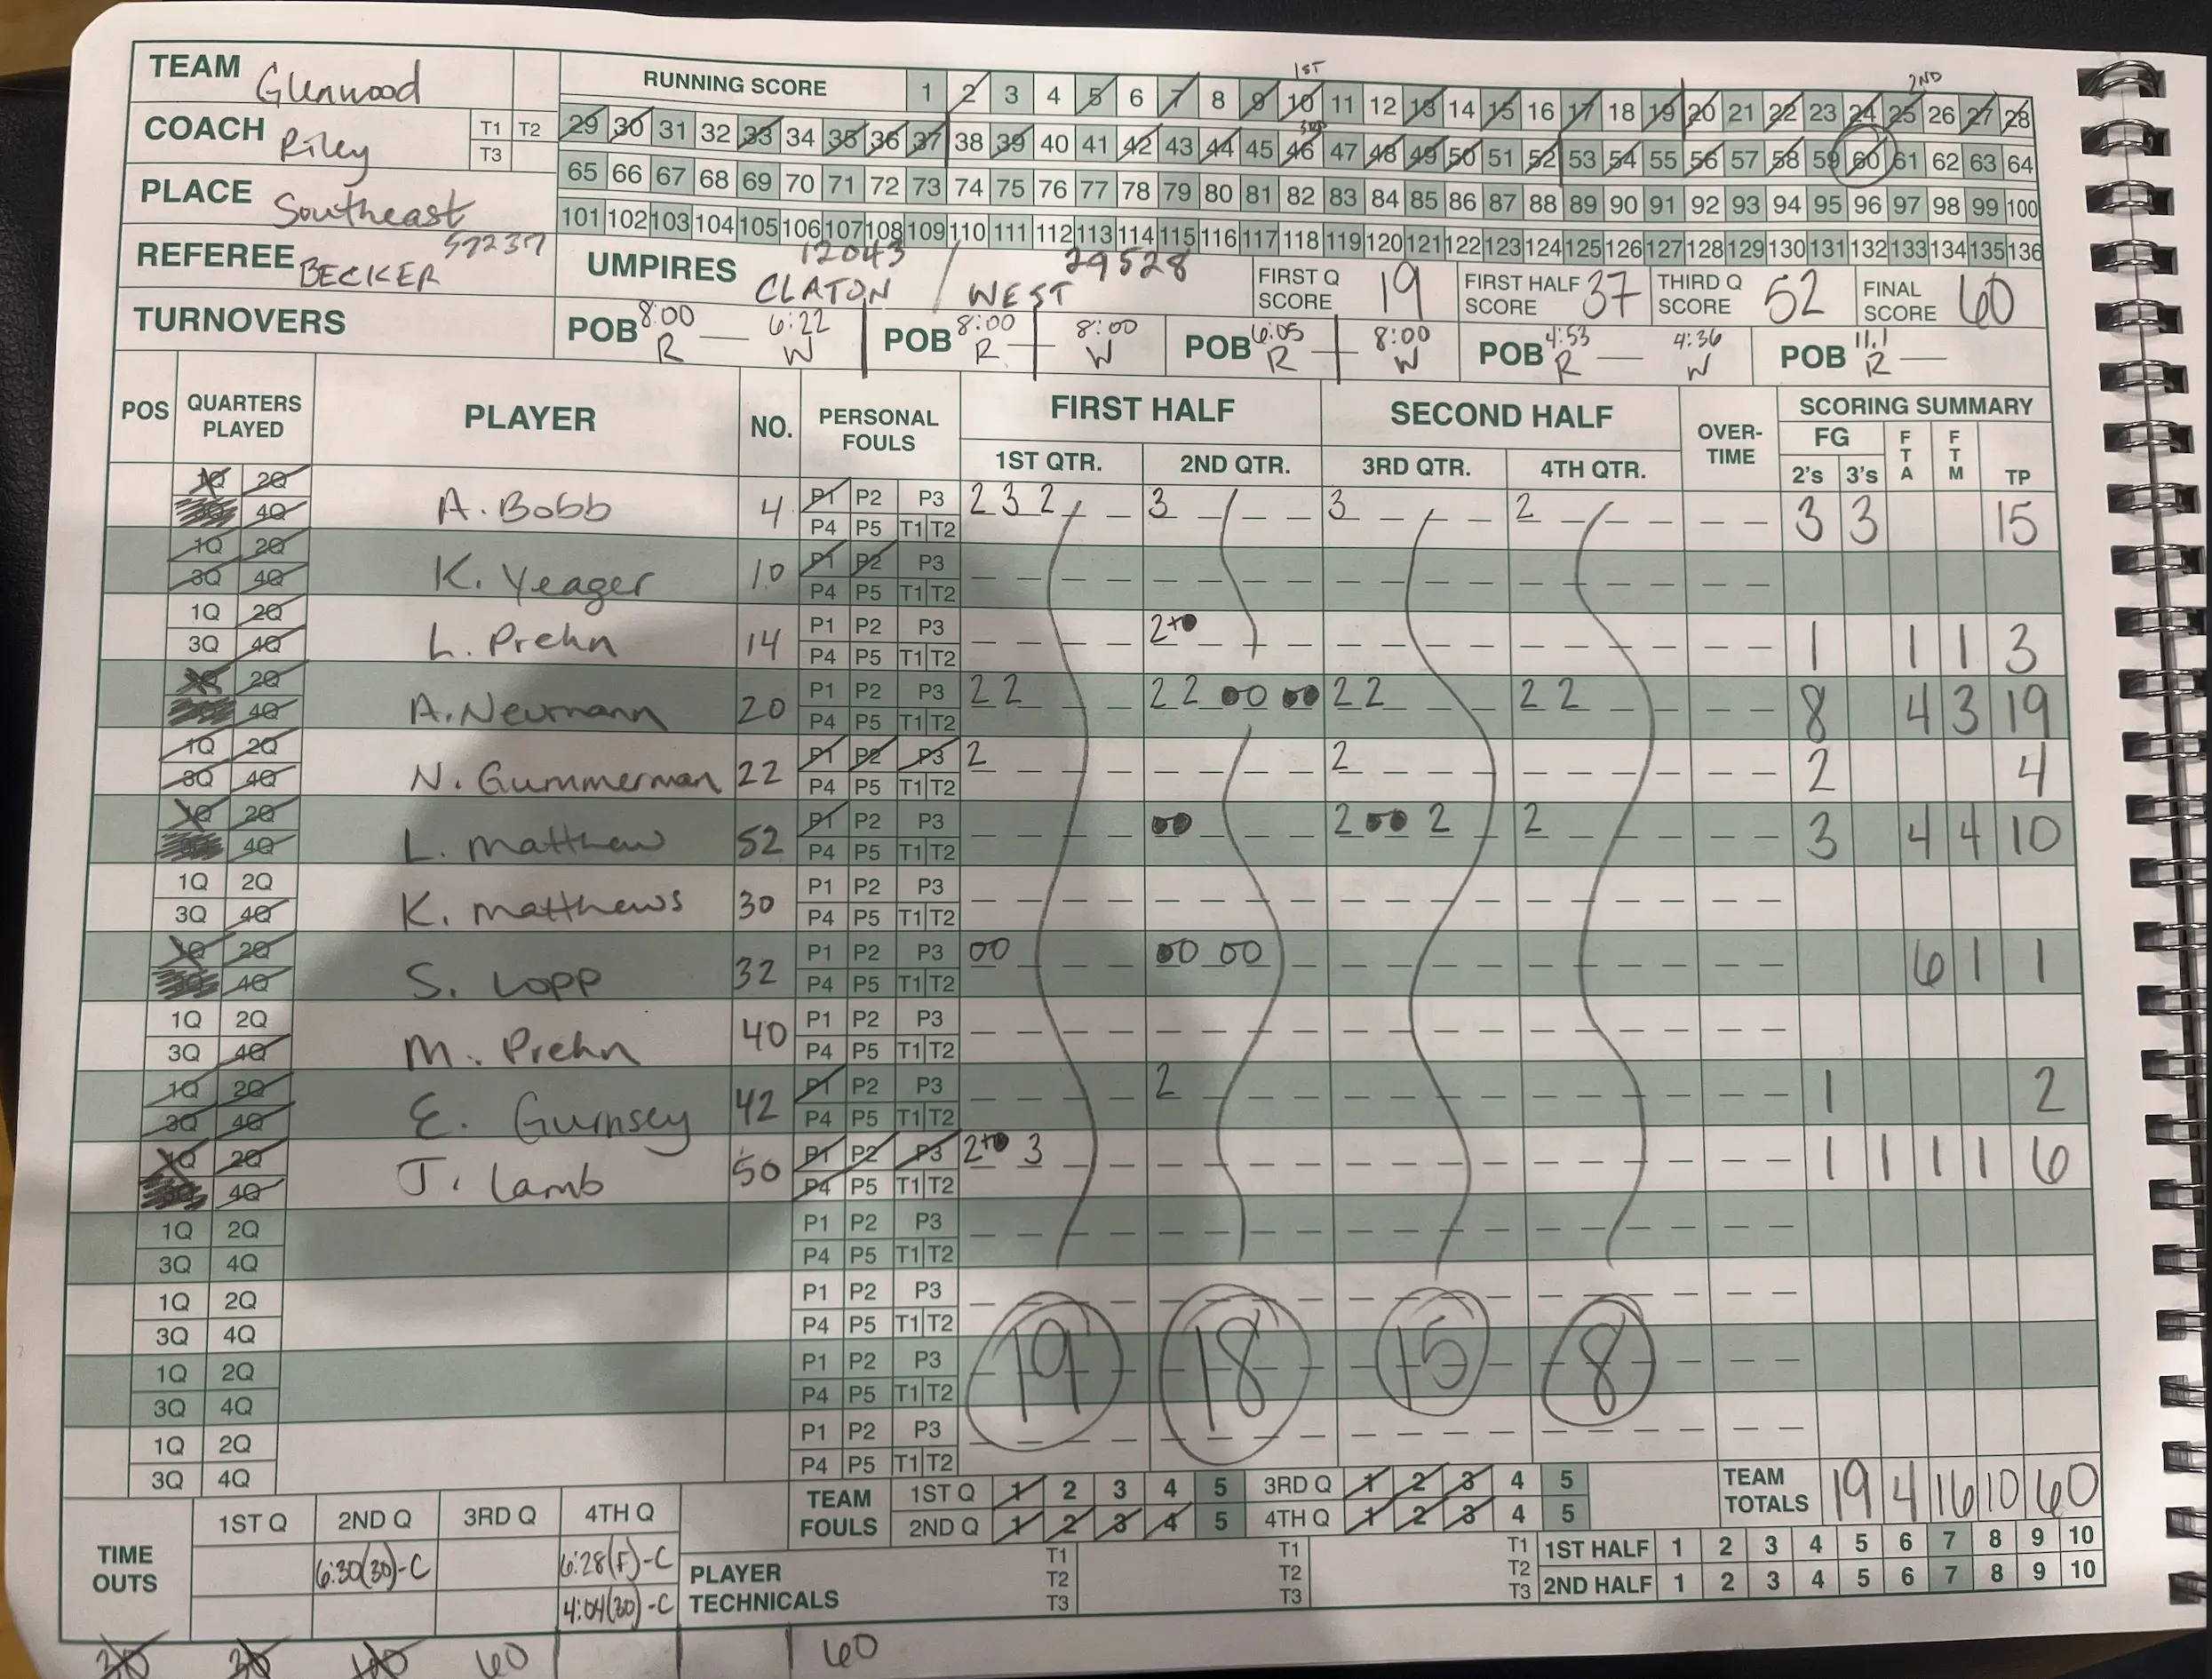 TEAM Glenwood
RUNNING SCORE 1 2 3 4 5 6 7 8 9 10 11 12 13 14 15 16 17 18 19 20 21 22 23 24 25 26 27 28
1ST 2ND
COACH Riley T1 T2 T3
29 30 31 32 33 34 35 36 37 38 39 40 41 42 43 44 45 46 47 48 49 50 51 52 53 54 55 56 57 58 59 60 61 62 63 64
3RD
65 66 67 68 69 70 71 72 73 74 75 76 77 78 79 80 81 82 83 84 85 86 87 88 89 90 91 92 93 94 95 96 97 98 99 100
PLACE Southeast
101 102 103 104 105 106 107 108 109 110 111 112 113 114 115 116 117 118 119 120 121 122 123 124 125 126 127 128 129 130 131 132 133 134 135 136
REFEREE BECKER 57237
UMPIRES 12043 CLATON / 29528 WEST
FIRST Q SCORE 19 FIRST HALF SCORE 37 THIRD Q SCORE 52 FINAL SCORE 60
TURNOVERS
POB 8:00 R — 6:22 W POB 8:00 R 8:00 W POB 6:05 R 8:00 W POB 4:53 R — 4:36 W POB 11.1 R —
POS QUARTERS PLAYED PLAYER NO. PERSONAL FOULS FIRST HALF SECOND HALF OVER-TIME SCORING SUMMARY
1ST QTR. 2ND QTR. 3RD QTR. 4TH QTR. FG 2's 3's FTA FTM TP
1Q 2Q 3Q 4Q A. Bobb 4 P1 P2 P3 P4 P5 T1 T2 2 3 2 3 3 2 3 3 15
1Q 2Q 3Q 4Q K. Yeager 10 P1 P2 P3 P4 P5 T1 T2
1Q 2Q 3Q 4Q L. Prehn 14 P1 P2 P3 P4 P5 T1 T2 2+0 1 1 1 3
1Q 2Q 4Q A. Neumann 20 P1 P2 P3 P4 P5 T1 T2 2 2 2 2 00 00 2 2 2 2 8 4 3 19
1Q 2Q 3Q 4Q N. Gummerman 22 P1 P2 P3 P4 P5 T1 T2 2 2 2 4
1Q 2Q 4Q L. Matthew 52 P1 P2 P3 P4 P5 T1 T2 00 2 00 2 2 3 4 4 10
1Q 2Q 3Q 4Q K. Matthews 30 P1 P2 P3 P4 P5 T1 T2
1Q 2Q 4Q S. Lopp 32 P1 P2 P3 P4 P5 T1 T2 00 00 00 6 1 1
1Q 2Q 3Q 4Q M. Prehn 40 P1 P2 P3 P4 P5 T1 T2
1Q 2Q 3Q 4Q E. Gurnsey 42 P1 P2 P3 P4 P5 T1 T2 2 1 2
1Q 2Q 4Q J. Lamb 50 P1 P2 P3 P4 P5 T1 T2 2+0 3 1 1 1 1 6
1Q 2Q 3Q 4Q P1 P2 P3 P4 P5 T1 T2
1Q 2Q 3Q 4Q P1 P2 P3 P4 P5 T1 T2
1Q 2Q 3Q 4Q P1 P2 P3 P4 P5 T1 T2
1Q 2Q 3Q 4Q P1 P2 P3 P4 P5 T1 T2
19 18 15 8
TEAM FOULS 1ST Q 1 2 3 4 5 3RD Q 1 2 3 4 5 TEAM TOTALS 19 4 16 10 60
2ND Q 1 2 3 4 5 4TH Q 1 2 3 4 5
TIME OUTS 1ST Q 2ND Q 3RD Q 4TH Q
6:30(30)-C 6:28(F)-C
4:04(30)-C
PLAYER TECHNICALS T1 T2 T3 T1 T2 T3 T1 T2 T3
1ST HALF 1 2 3 4 5 6 7 8 9 10
2ND HALF 1 2 3 4 5 6 7 8 9 10
60 60